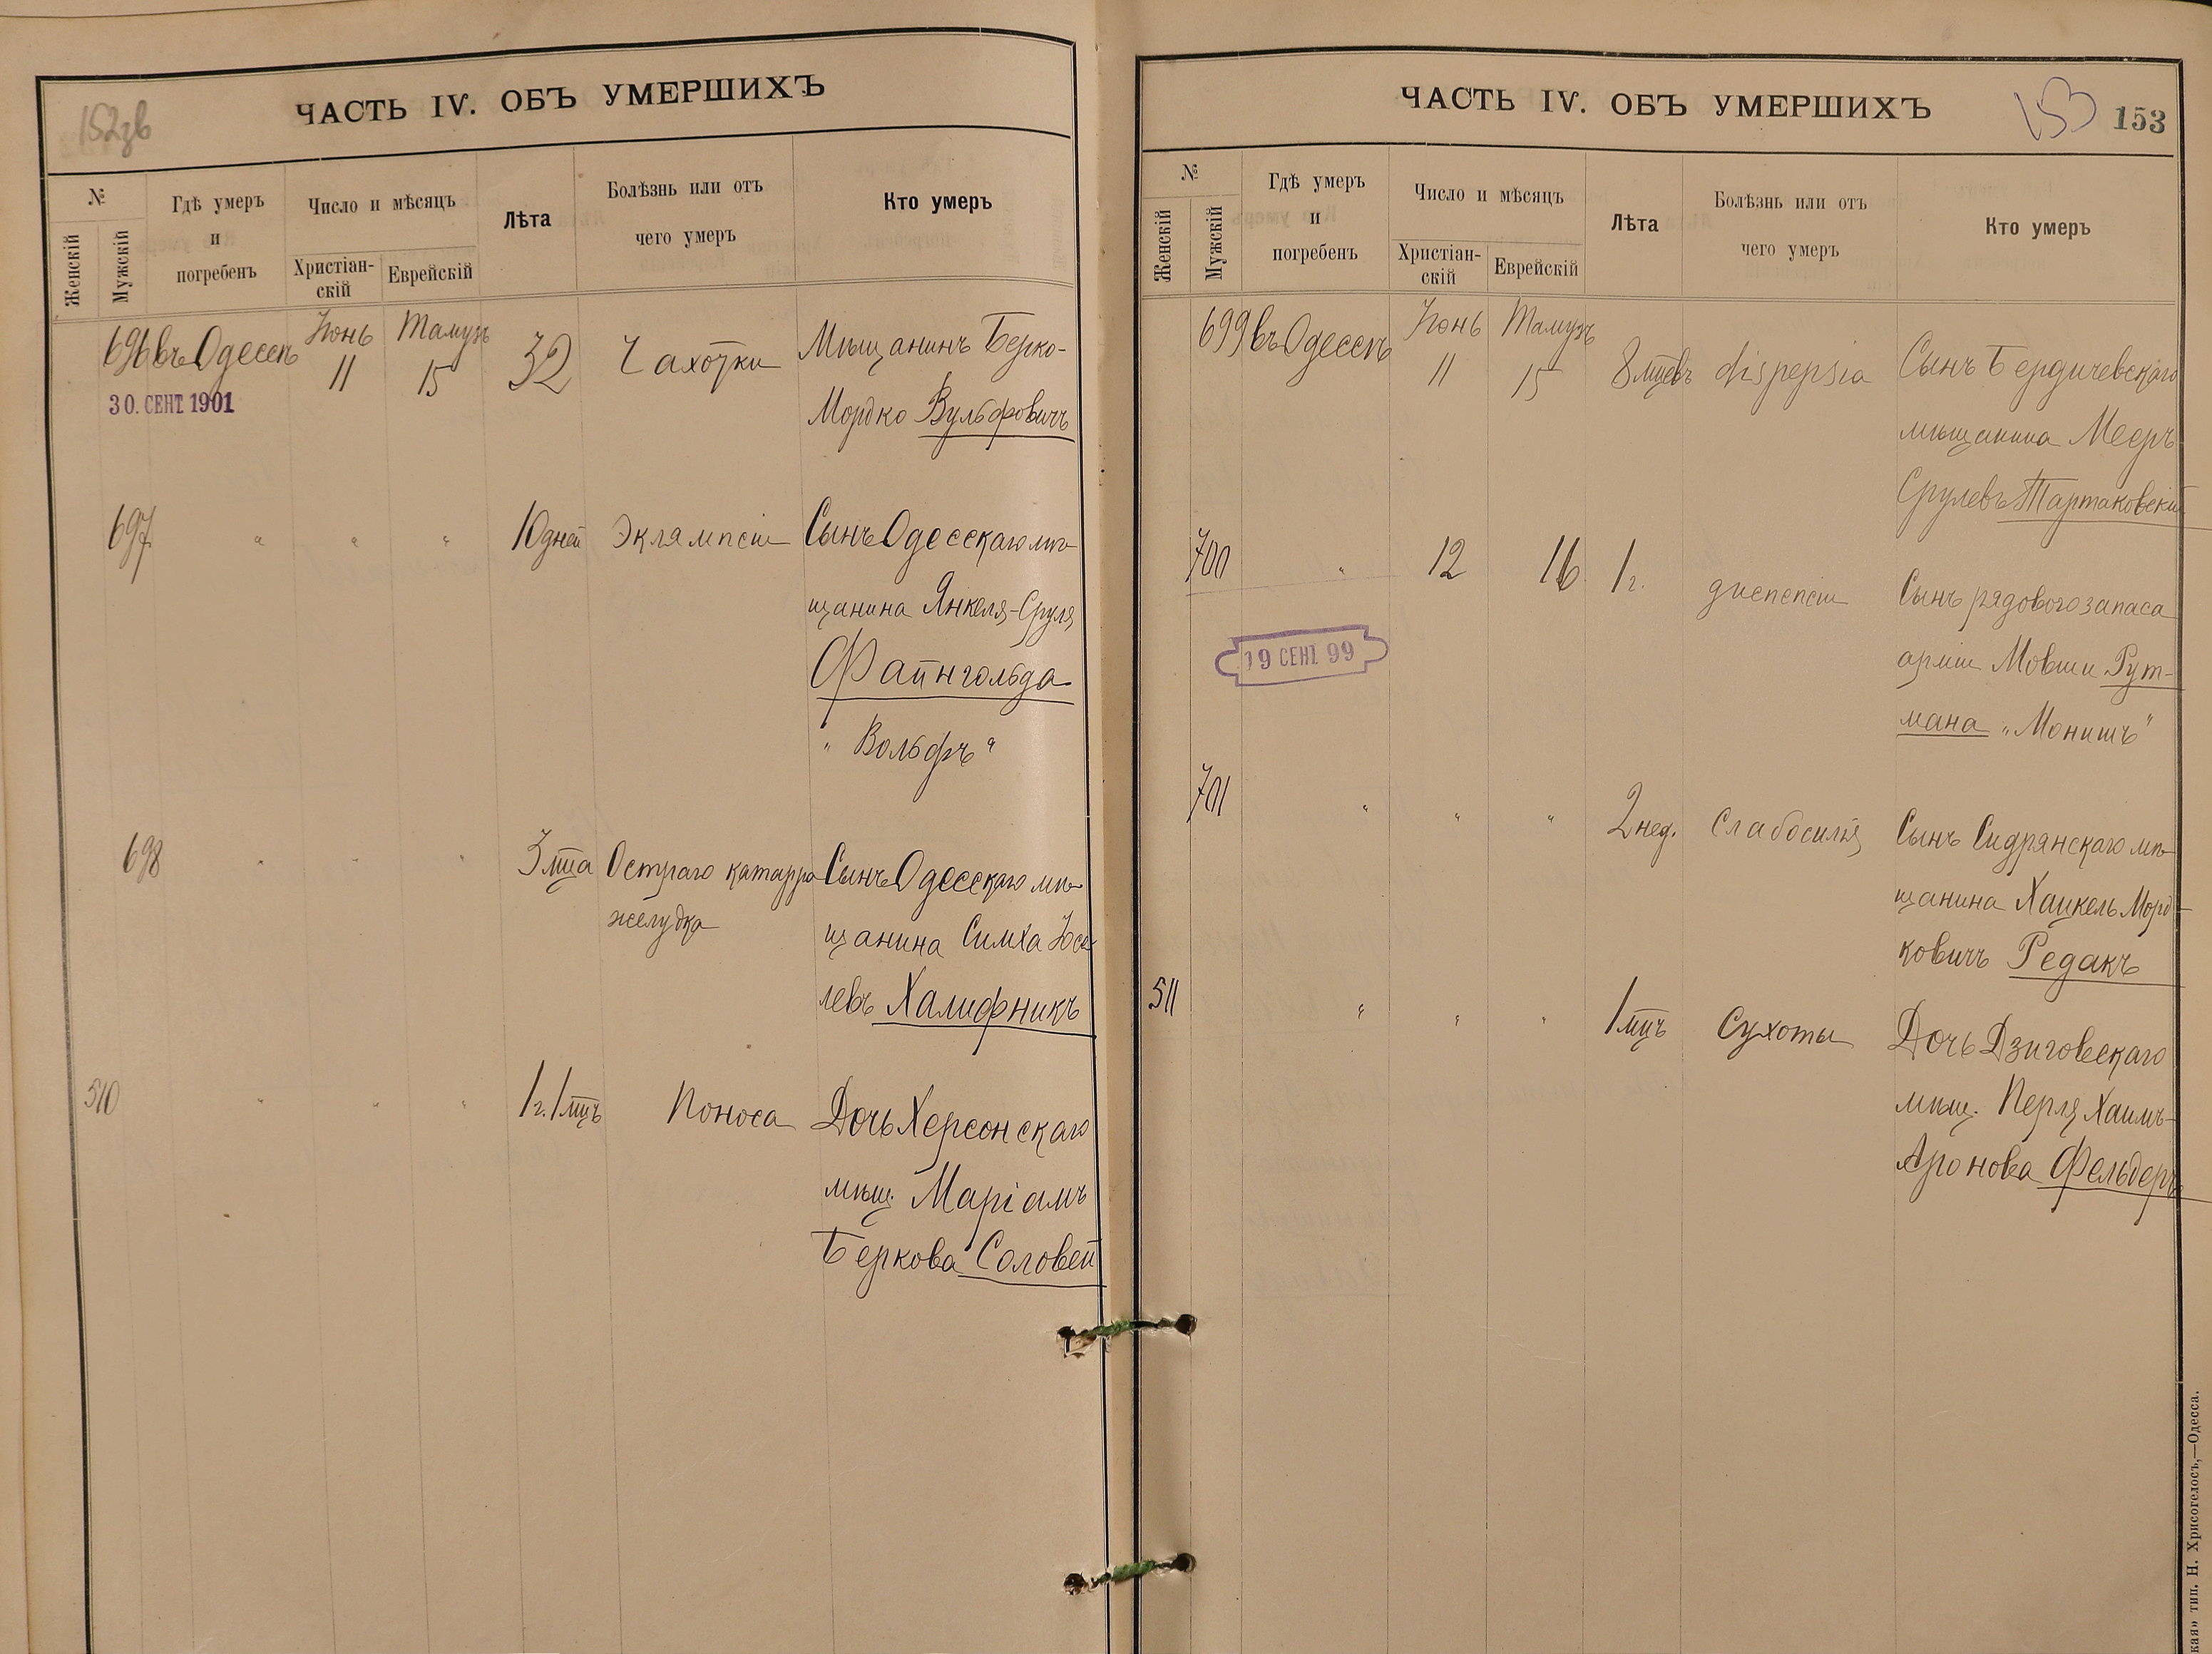 152зв
ЧАСТЬ IV. ОБЪ УМЕРШИХЪ
№
Женскій
Мужскій
Гдѣ умеръ
и
погребенъ
Число и мѣсяцъ
Христіан-
скій
Еврейскій
Лѣта
Болѣзнь или отъ
чего умеръ
Кто умеръ
696 въ Одессѣ Іюнь 11 Тамузъ 15 32 Чахотки Мѣщанинъ Берко-
30. СЕНТ. 1901
Мордко Вульфовичъ
697 " " " 10 дней Эклямпсіи Сынъ Одесскаго мѣ-
щанина Янкеля-Сруля
Файнгольда
"Вольфъ"
698 " " " 3 мца Остраго катарра Сынъ Одесскаго мѣ-
желудка
щанина Симха
левъ Халифникъ
510 " " " 1 г. 1 мцъ Поноса Дочь Херсонскаго
мѣщ. Маріамъ
Беркова Соловей
ЧАСТЬ IV. ОБЪ УМЕРШИХЪ
153
153
№
Женскій
Мужскій
Гдѣ умеръ
и
погребенъ
Число и мѣсяцъ
Христіан-
скій
Еврейскій
Лѣта
Болѣзнь или отъ
чего умеръ
Кто умеръ
699 въ Одессѣ Іюнь 11 Тамузъ 15 8 мцевъ dispepsia Сынъ Бердичевскаго
мѣщанина Мееръ
Срулевъ Тартаковскій
700 " 12 16 1 г. диспепсіи Сынъ рядового запаса
19 СЕНТ. 99
арміи Мовши Рут-
мана "Монишъ"
701 " " " 2 нед. Слабосилія Сынъ мѣ-
щанина Хаикель Морд-
ковичъ Редакъ
511 " " " 1 мцъ Сухоты Дочь Дзиговскаго
мѣщ. Перля Хаимъ-
Аронова Фельдеръ
кая» тип. Н. Хрисогелосъ,—Одесса.